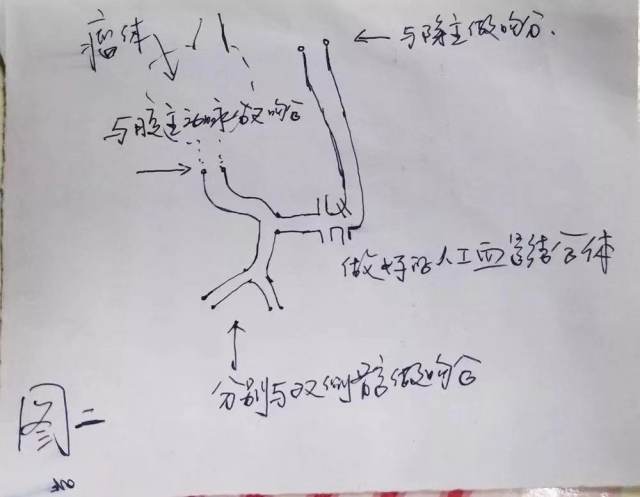 瘤体
←与降主做吻合.
与腹主动脉做吻合
做好的人工血管结合体
分别与双侧髂做吻合
图二